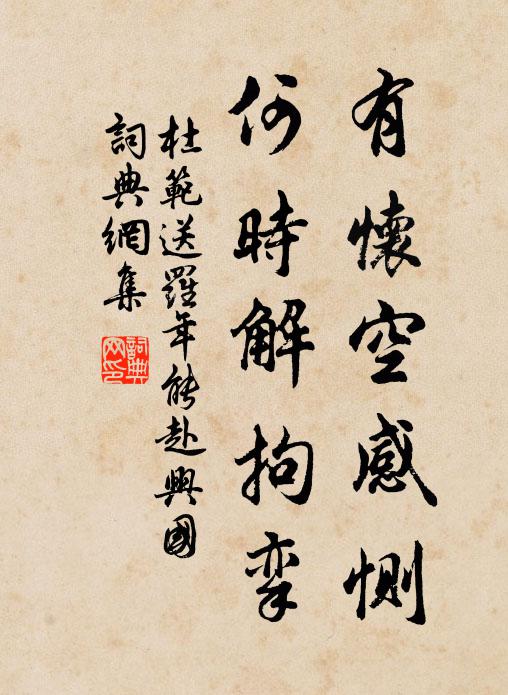 有懷空感惻
何時解拘孿
杜範送羅年能赴興國
詞典網集
詞典網印